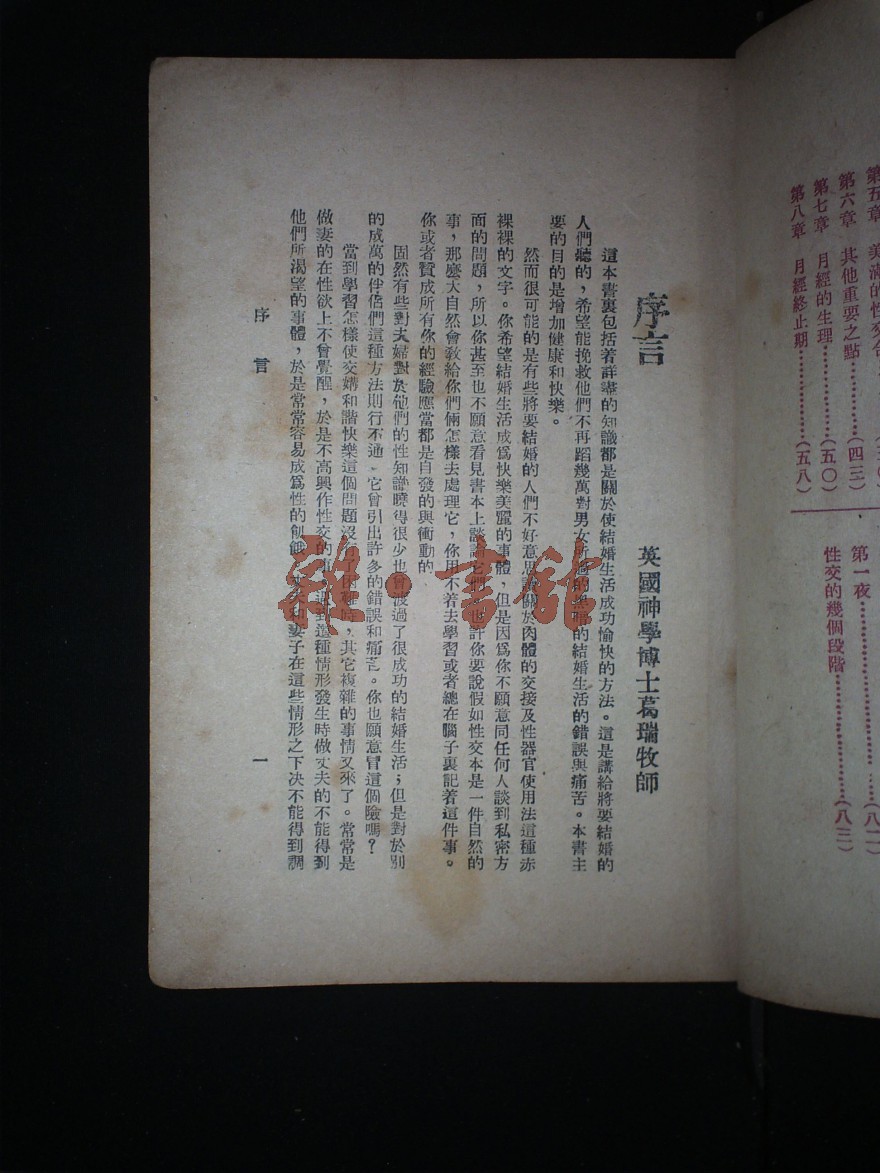 第五章　美滿的性交合
第六章　其他重要之點…………(四三)
第七章　月經的生理……………(五〇)
第八章　月經終止期……………(五八)
第一夜……………………(八二)
性交的幾個段階……………(八三)
序言
英國神學博士葛瑞牧師
這本書裏包括着詳盡的知識都是關於使結婚生活成功愉快的方法。這是講給將要結婚的
人們聽的，希望能挽救他們不再蹈幾萬對男女所蹈的黑暗的結婚生活的錯誤與痛苦。本書主
要的目的是增加健康和快樂。
然而很可能的是有些將要結婚的人們不好意思讀關於肉體的交接及性器官使用法這種赤
裸裸的文字。你希望結婚生活成爲快樂美麗的事體，但是因爲你不願意同任何人談到私密方
面的問題，所以你甚至也不願意看見書本上談論它們。也許你要說假如性交本是一件自然的
事，那麼大自然會教給你們倆怎樣去處理它，你用不着去學習或者總在腦子裏記着這件事。
你或者贊成所有你的經驗應當都是自發的與衝動的
固然有些對夫婦對於他們的性知識曉得很少也曾渡過了很成功的結婚生活；但是對於別
的成萬的伴侶們這種方法則行不通，它曾引出許多的錯誤和痛苦。你也願意冒這個險嗎？
當到學習怎樣使交媾和諧快樂這個問題沒有了困難時，其它複雜的事情又來了。常常是
做妻的在性欲上不曾覺醒，於是不高興作性交的事，遇到這種情形發生時做丈夫的不能得到
他們所渴望的事體，於是常常容易成爲性的飢餓，丈夫和妻子在這些情形之下决不能得到調
序言
一
雜·書館